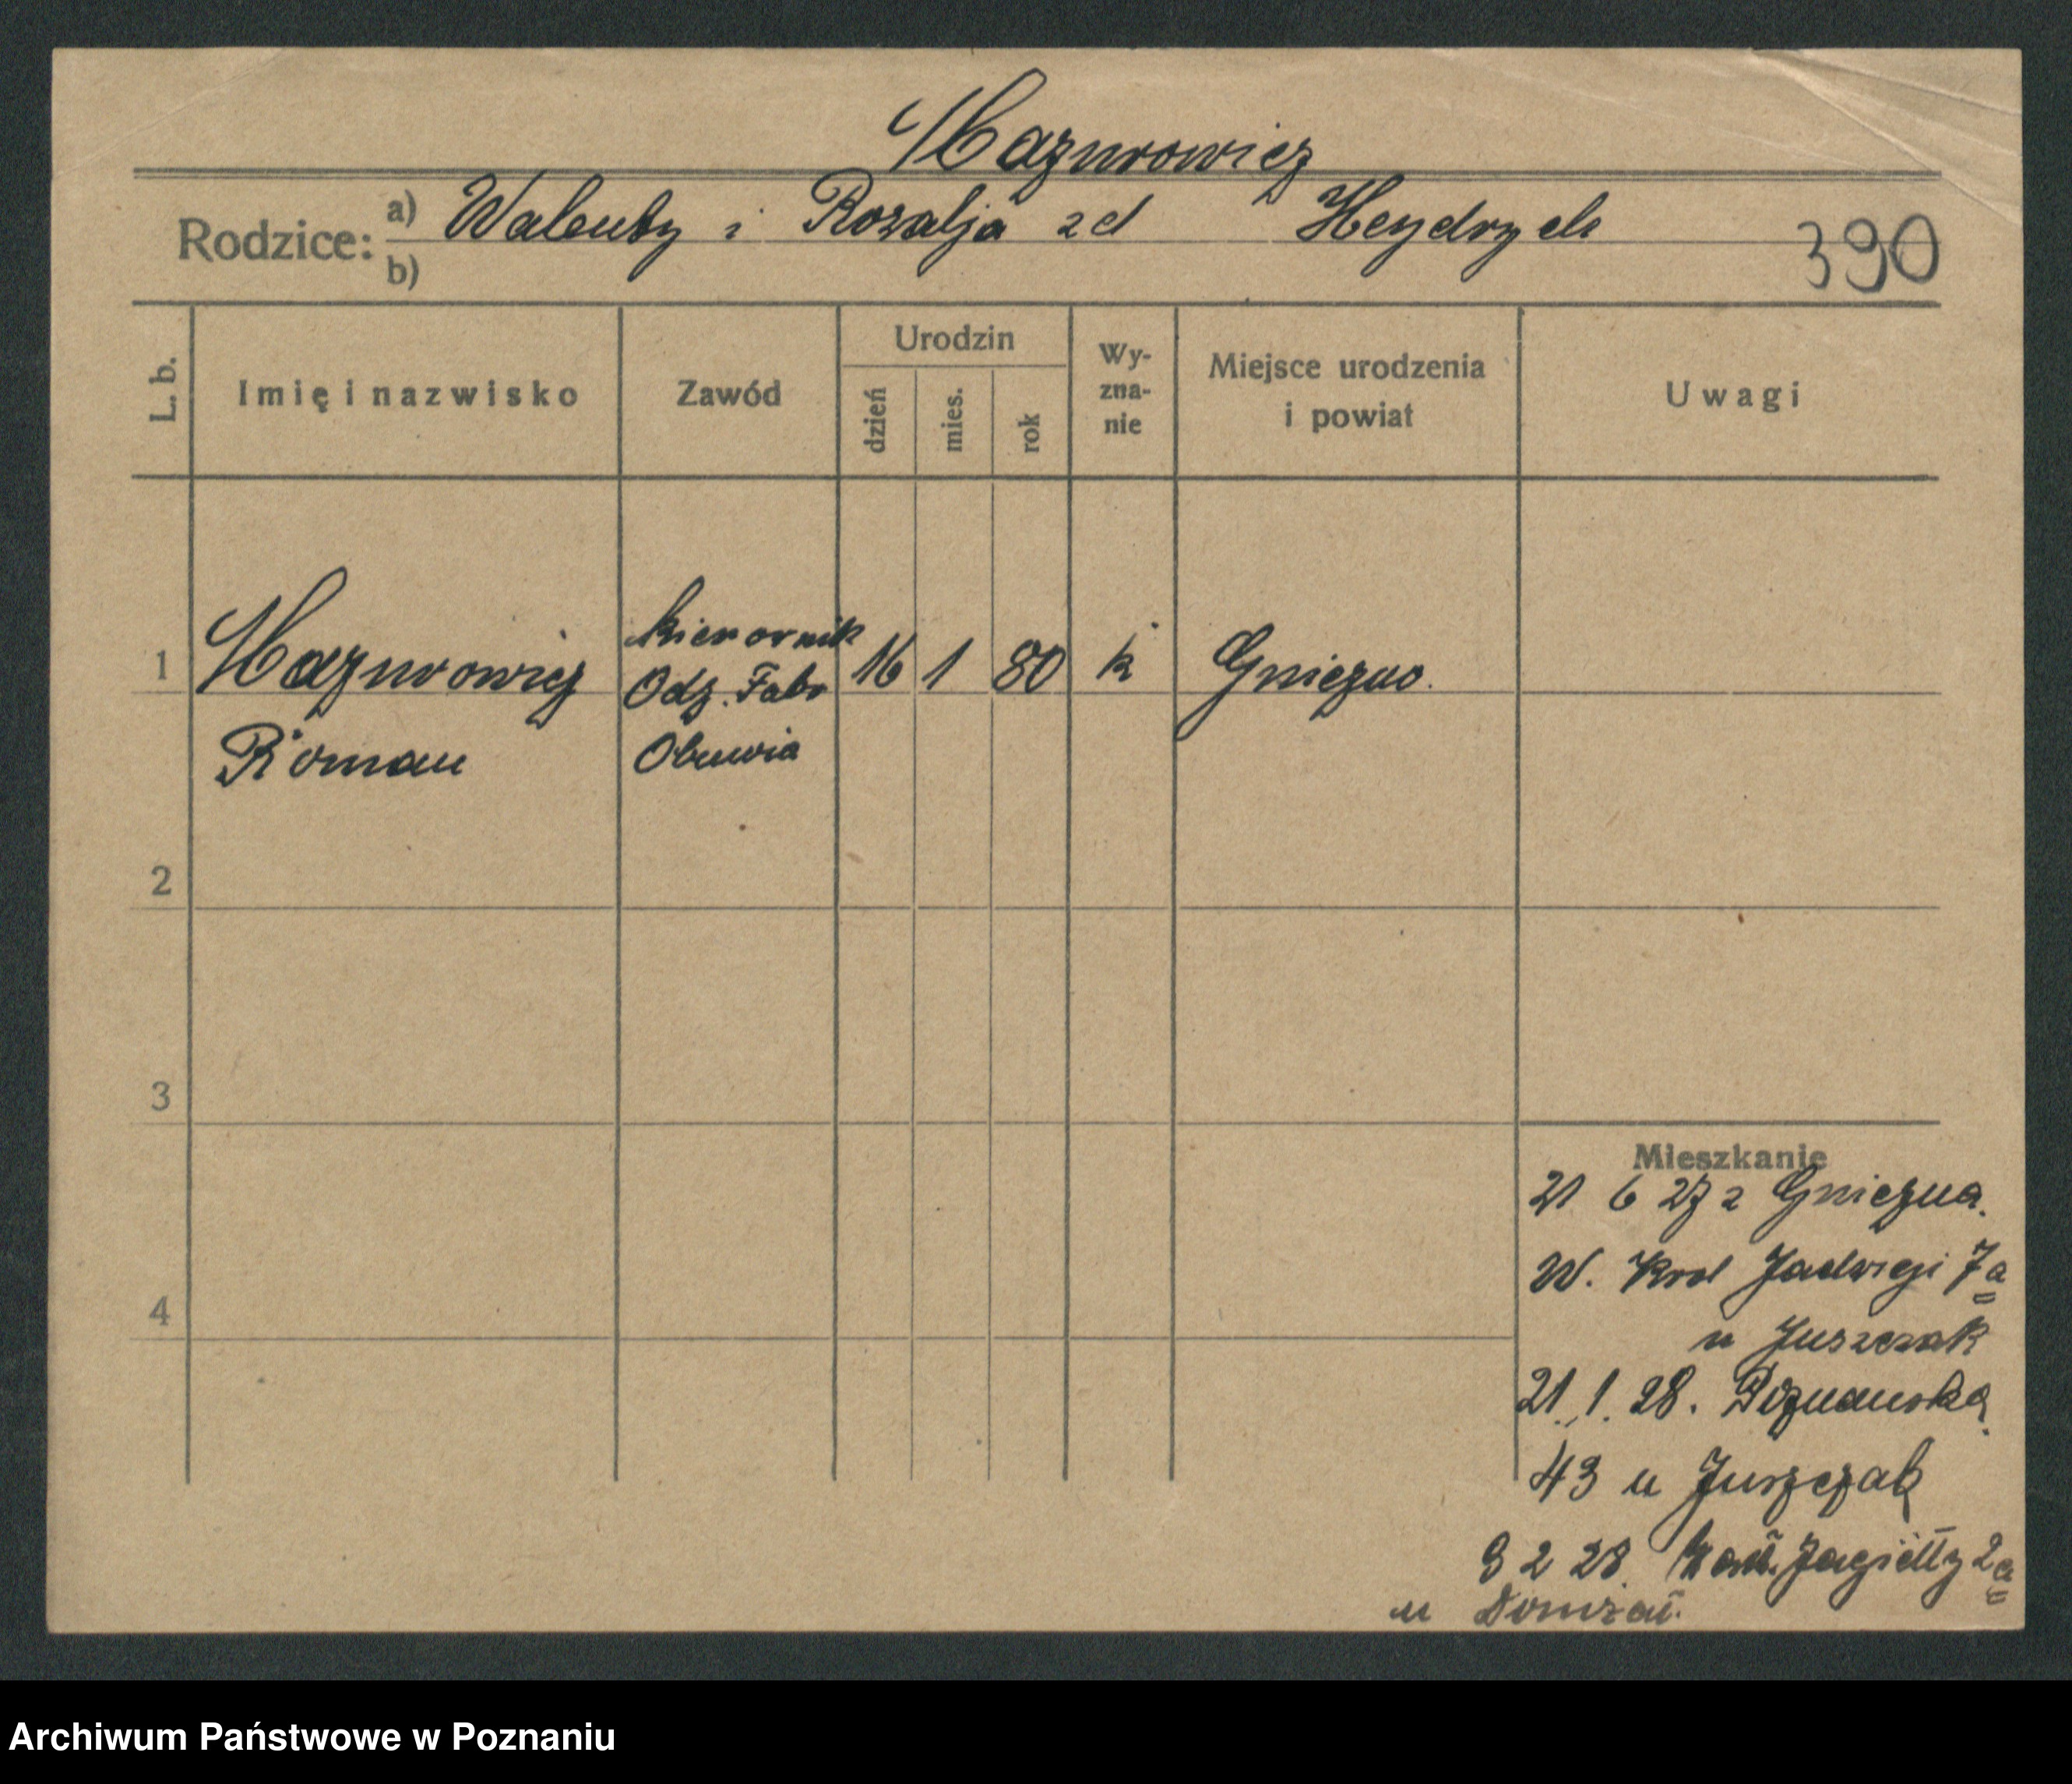 Mazurowicz
Rodzice: a) Walenty i Rozalja zd Heydrych
b)
390
L. b.
Imię i nazwisko
Zawód
Urodzin
dzień
mies.
rok
Wy-
zna-
nie
Miejsce urodzenia
i powiat
Uwagi
1
Mazurowicz
Roman
kierownik
Odz. Fabr
Obuwia
16 1 80 k Gniezno.
2
3
4
Mieszkanie
21 6 27 z Gniezna.
W. Krol Jadwigi 7a
u Juszczak
21.1.28. Poznanska
43 u Juszczak
9 2 28. Jagiełły 2a
u
Archiwum Państwowe w Poznaniu